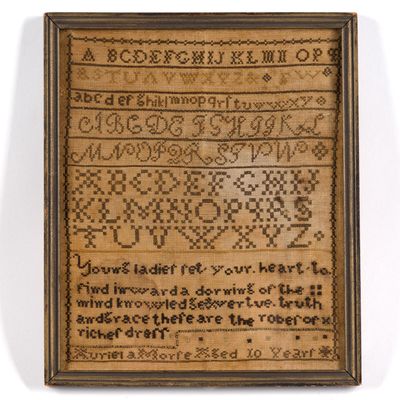 A BCDEFGHIJ KL MN OP q
RSTUVWXYZ&
abcdefghiklmnopqrſtuvwxy
ABCDEFGHIJKL
MNOPQRSTVW
ABCDEFGHIJ
KLMNOPQRS
TUVWXYZ
Young ladieſ ſet your heart to
find inward adorning of the
mind knowledge vertue truth
and Grace theſe are the robeſ of
richeſ dreſſ
Auriela Morſe Aged 10 Yearſ